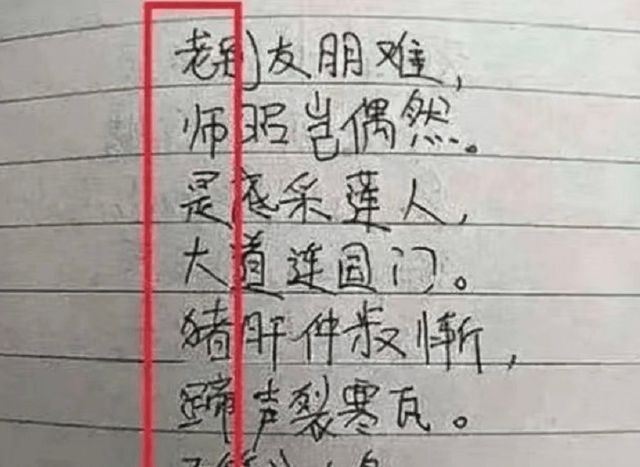 老别友朋难，
师昭岂偶然。
是底采莲人，
大道连国门。
猪肝仲叔惭，
蹄声裂寒瓦。